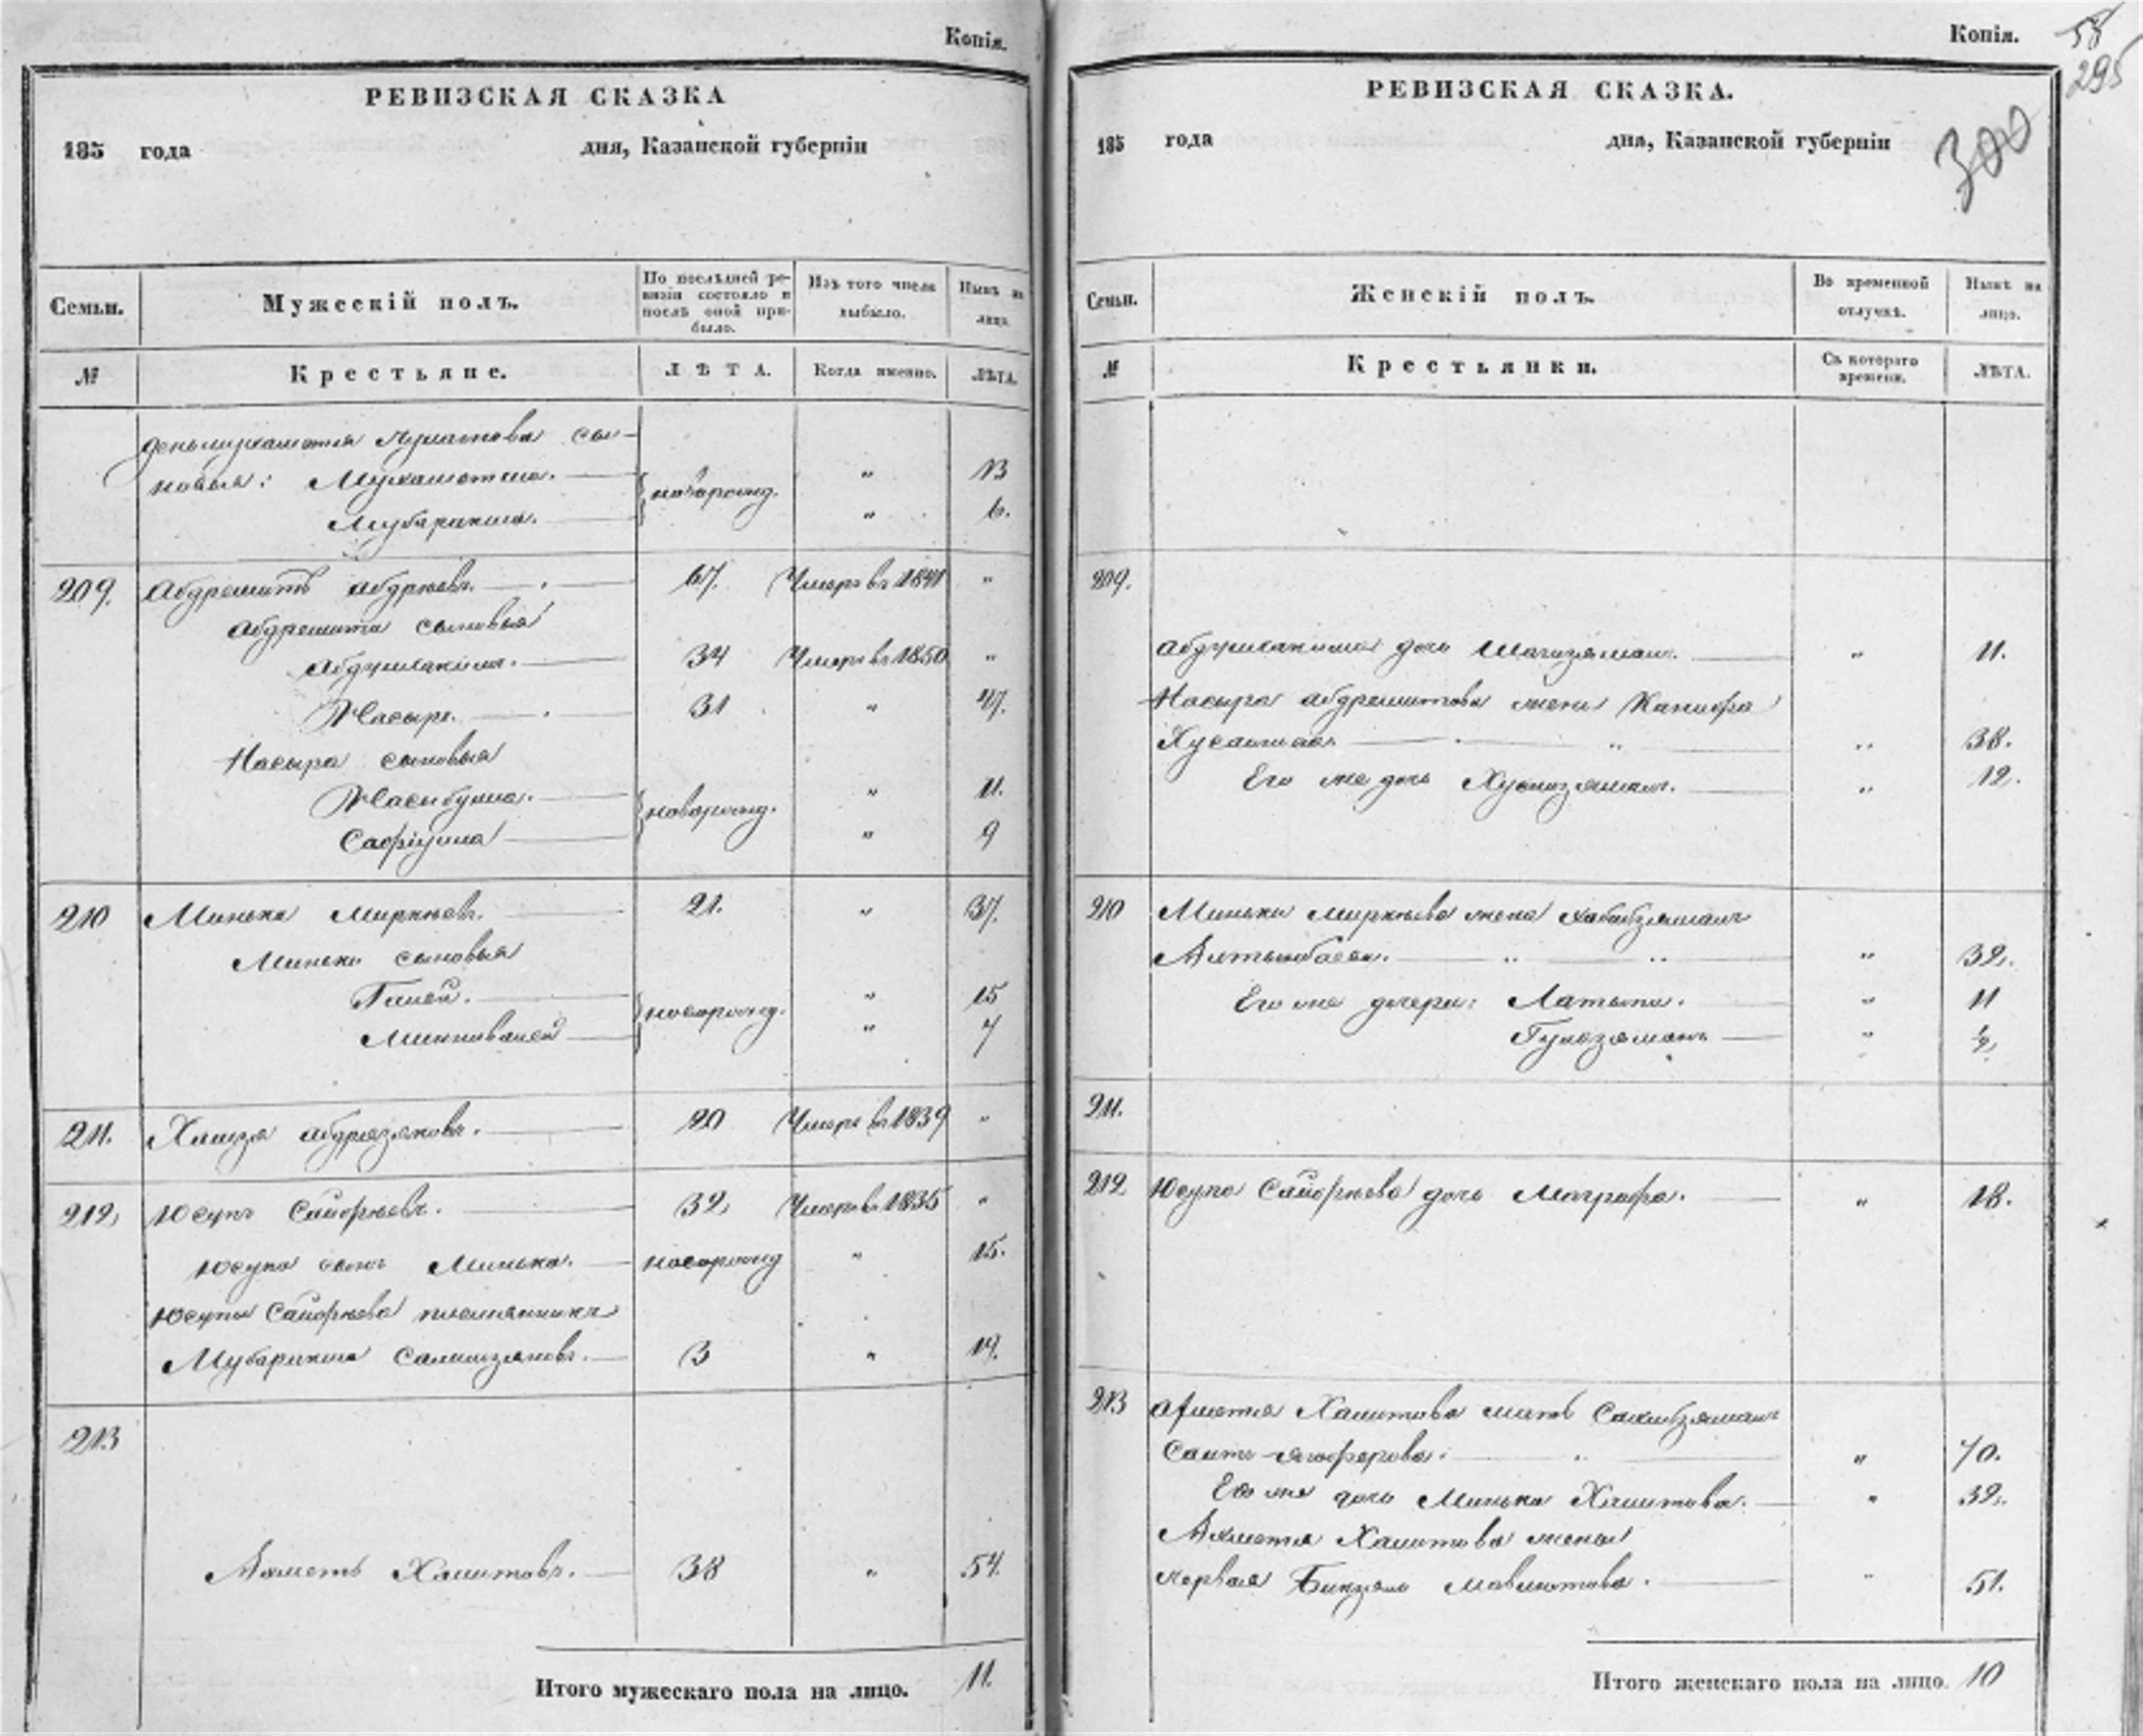 Копія.
РЕВИЗСКАЯ СКАЗКА
185 года дня, Казанской губерніи
Семьи. Мужескій полъ. По послѣдней ревизіи состояло и послѣ оной прибыло. Изъ того числа выбыло. Нынѣ на лицо.
№ Крестьяне. ЛѢТА. Когда именно. ЛѢТА.
сы-
новья: Мухаметша. новорожд. „ 13
Мубаракша. „ 6.
209. Абдрешитъ 67. Умеръ въ 1841 „
Абдрешита сыновья
34 Умеръ въ 1850 „
Насыръ. 31 „ 47.
Насыра сыновья
Насибулла. новорожд. „ 11.
Сафіулла „ 9
210 Минька 21. „ 37.
Миньки сыновья
Галей. новорожд. „ 15
Миннивалей „ 7
211. Хамза Абдрязяковъ. 20 Умеръ въ 1839 „
212 Юсупъ Сайфѣевъ. 32 Умеръ въ 1835 „
Юсупа сынъ Минька. новорожд „ 15.
Юсупа Сайфѣева племянникъ
Мубаракша Салимзяновъ. 3 „ 19.
213
Ахметь Хамитовъ. 38 „ 54.
Итого мужескаго пола на лицо. 11.
Копія. 58
295
РЕВИЗСКАЯ СКАЗКА.
300
185 года дня, Казанской губерніи
Семьи. Женскій полъ. Во временной отлучкѣ. Нынѣ на лицо.
№ Крестьянки. Съ котораго времени. ЛѢТА.
209.
дочь Шагизяманъ. „ 11.
Насыра Абдрешитова жена Канифа
„ 38.
Его же дочь Хуснизяманъ. „ 12.
210 Миньки жена Хабибзяманъ
Алтынбаева. „ 32.
Его же дочери: „ 11
Гульзяманъ „ ½
211.
212 Юсупа Сайфѣева дочь Маграфа. „ 18.
213 Ахметя Хамитова мать
„ 70.
Его же дочь Минька Хамитова. „ 32.
Ахметя Хамитова жены
первая Мавлютова. „ 51.
Итого женскаго пола на лицо 10